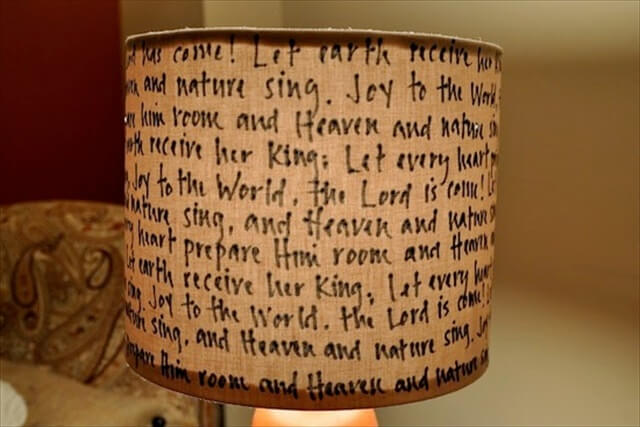 has come! Let earth receive her
and nature sing. Joy to the World,
him room and Heaven and nature
receive her King; Let every heart
Joy to the World, the Lord is come! Let
nature sing, and Heaven and nature
heart prepare Him room and Heaven
earth receive her King; let every heart
Joy to the World, the Lord is come!
sing, and Heaven and nature sing. Joy
prepare Him room and Heaven and nature